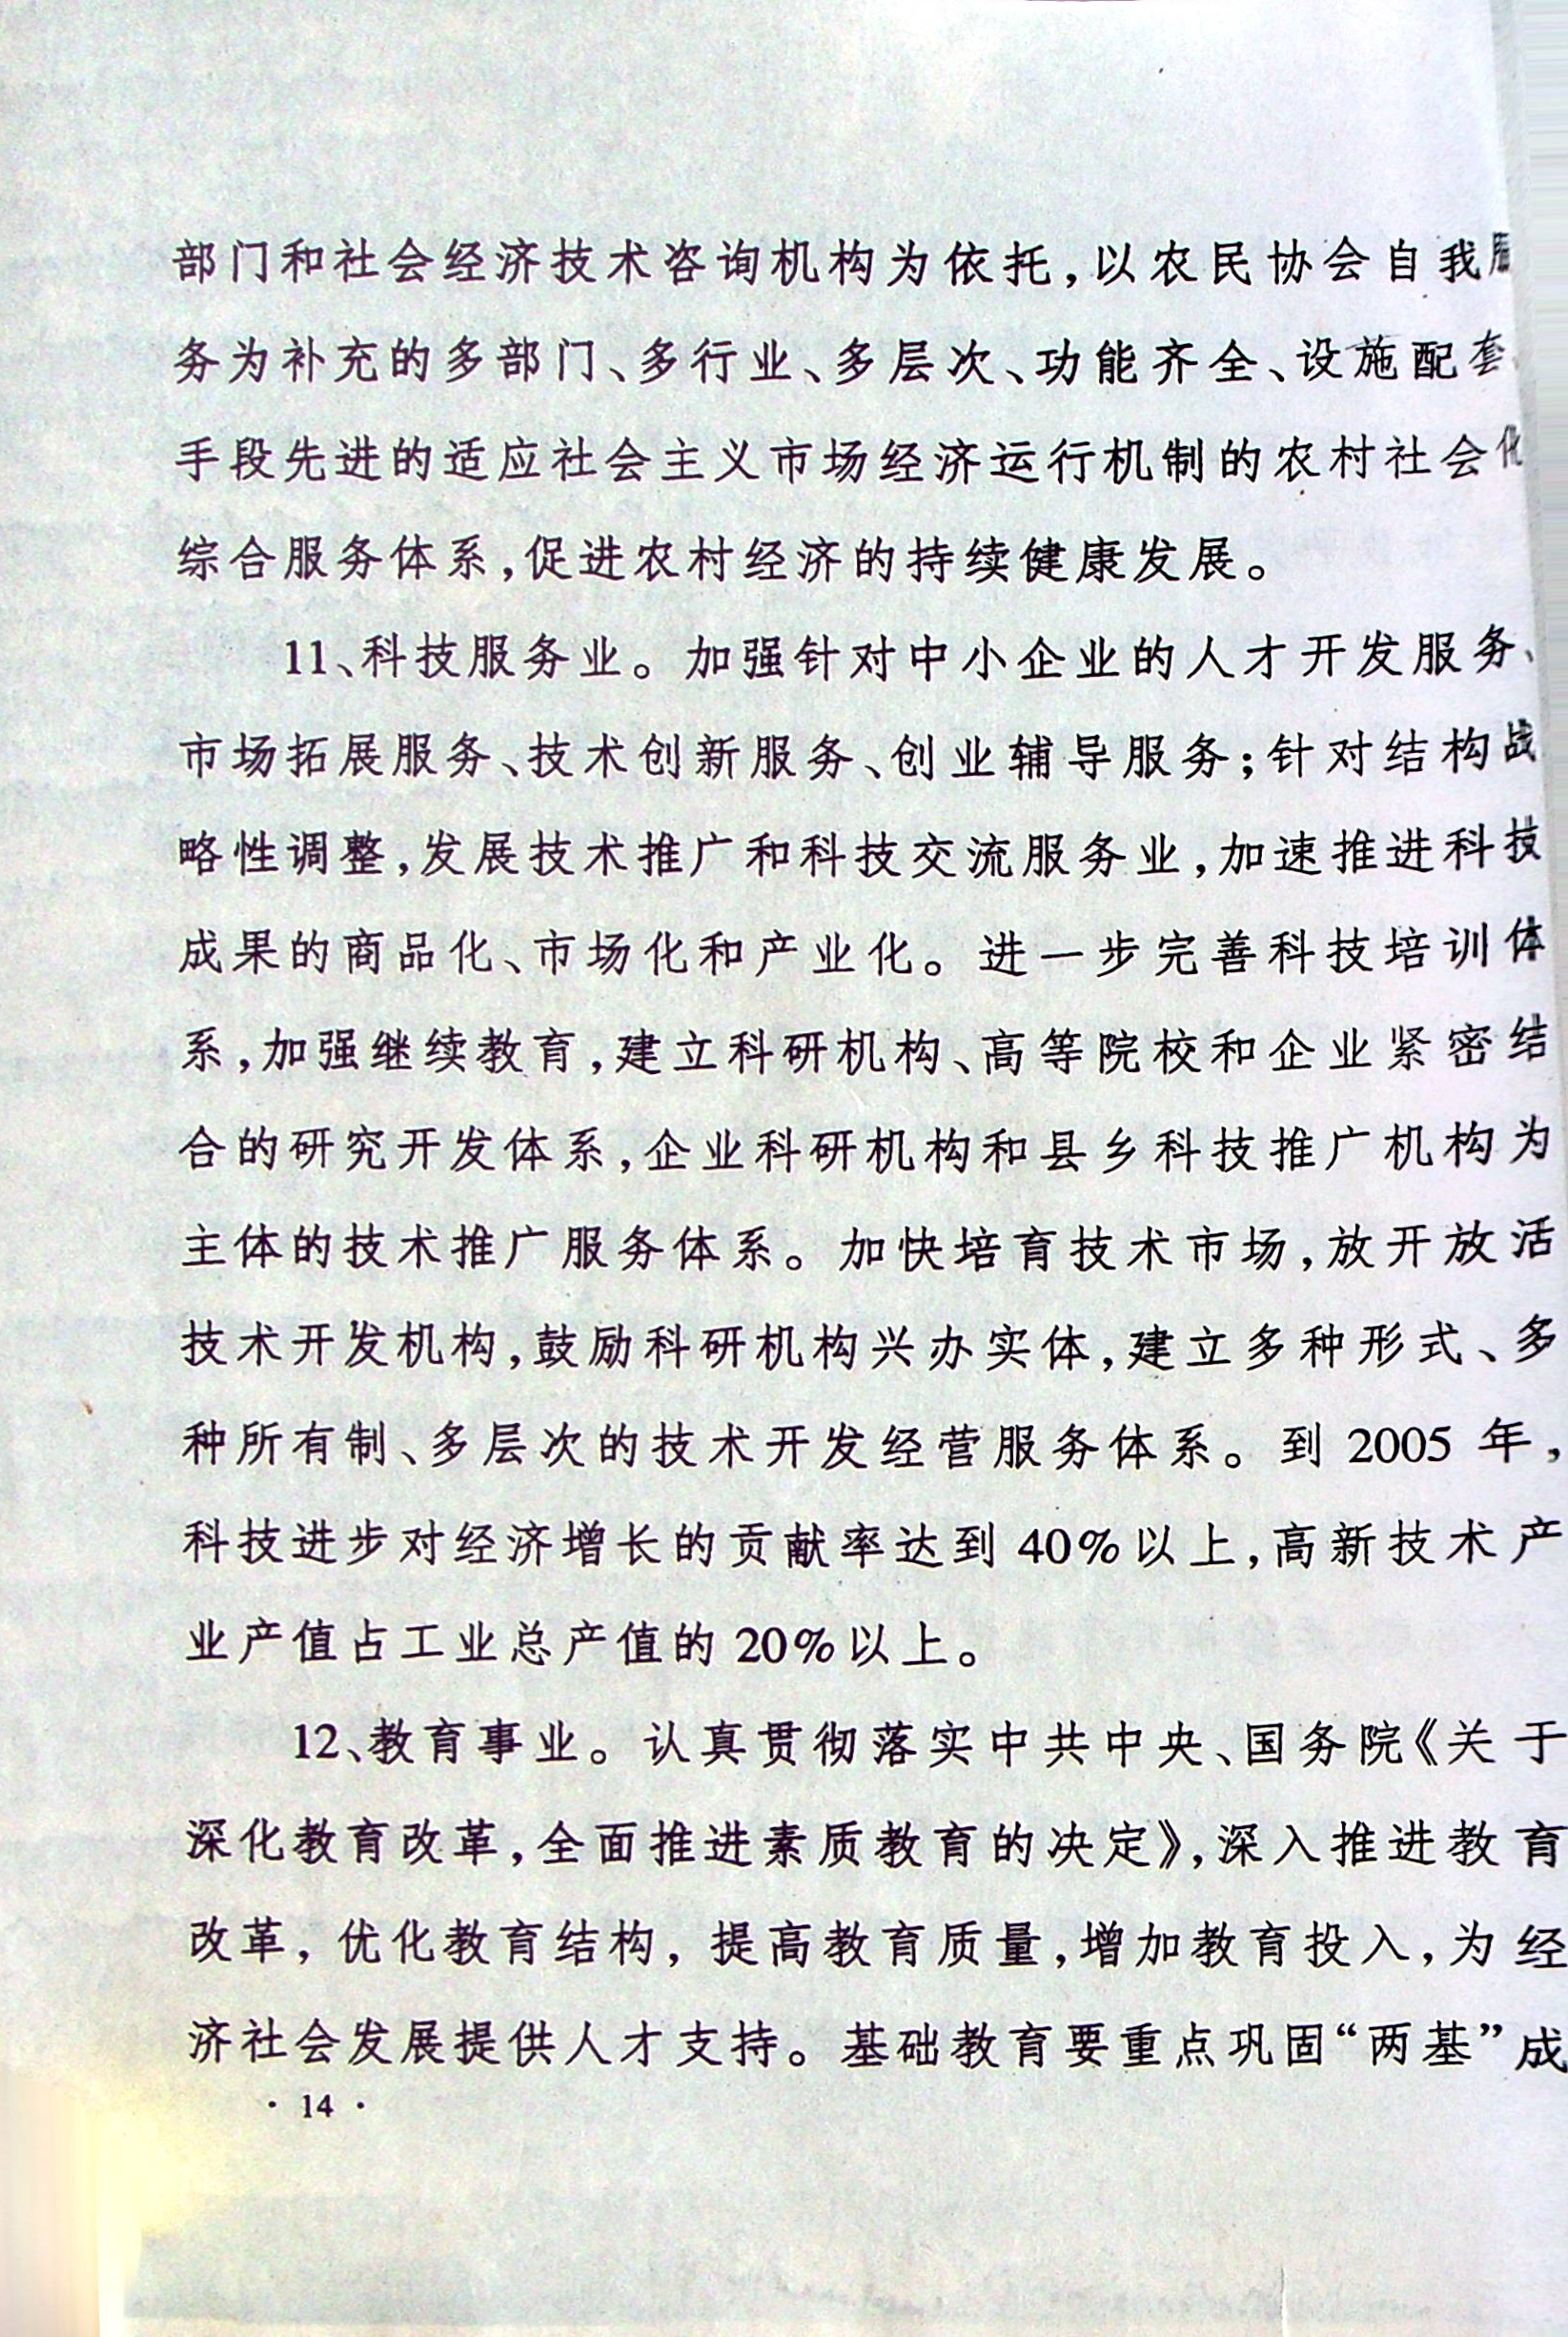 部门和社会经济技术咨询机构为依托,以农民协会自我服
务为补充的多部门、多行业、多层次、功能齐全、设施配套、
手段先进的适应社会主义市场经济运行机制的农村社会化
综合服务体系,促进农村经济的持续健康发展。
11、科技服务业。加强针对中小企业的人才开发服务、
市场拓展服务、技术创新服务、创业辅导服务;针对结构战
略性调整,发展技术推广和科技交流服务业,加速推进科技
成果的商品化、市场化和产业化。进一步完善科技培训体
系,加强继续教育,建立科研机构、高等院校和企业紧密结
合的研究开发体系,企业科研机构和县乡科技推广机构为
主体的技术推广服务体系。加快培育技术市场,放开放活
技术开发机构,鼓励科研机构兴办实体,建立多种形式、多
种所有制、多层次的技术开发经营服务体系。到 2005 年,
科技进步对经济增长的贡献率达到 40%以上,高新技术产
业产值占工业总产值的 20%以上。
12、教育事业。认真贯彻落实中共中央、国务院《关于
深化教育改革,全面推进素质教育的决定》,深入推进教育
改革,优化教育结构,提高教育质量,增加教育投入,为经
济社会发展提供人才支持。基础教育要重点巩固“两基”成
· 14 ·